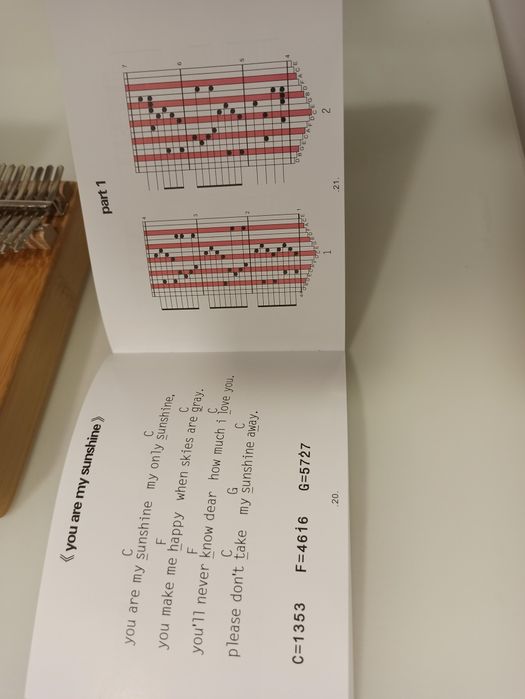 《 you are my sunshine 》
C C
you are my sunshine my only sunshine,
F C
you make me happy when skies are gray.
F C
you'll never know dear how much i love you.
C G C
please don't take my sunshine away.
C=1353 F=4616 G=5727
.20.
part 1
1
2
.21.